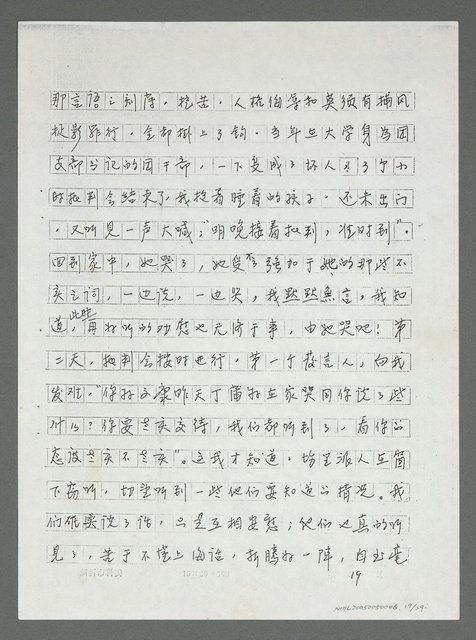 那言语之刻薄，挖苦，人格侮辱和莫须有捕风
捉影罪行，全部掛上了钩。当年在大学身為团
支部书记的团干部，一下变成了坏人。3个小
时批判会结束了，我抱着睡着的孩子，还未出门
，又听见一声大喊；"明晚接着批判，准时到"。
回到家中，她哭了，她受不了强加于她的那些不
实之词，一边说，一边哭，我默默無言，我知
道，此時再好听的劝慰也无济于事，由她哭吧！第
二天，批判会按时进行，第一个發言人，向我
发难，"你好 昨天丁蒲 在家哭同你说了些
什么？你要老实交待，我们都听到了，看你的
态度老实不老实"。这我才知道，场里派人在窗
下窃听，切望听到一些他们要知道的情况。我
们确实说了话，只是互相安慰；他们也真的听
见了，苦于不懂上海话，折腾好一阵，自
19
NMTL20050050046 19/29